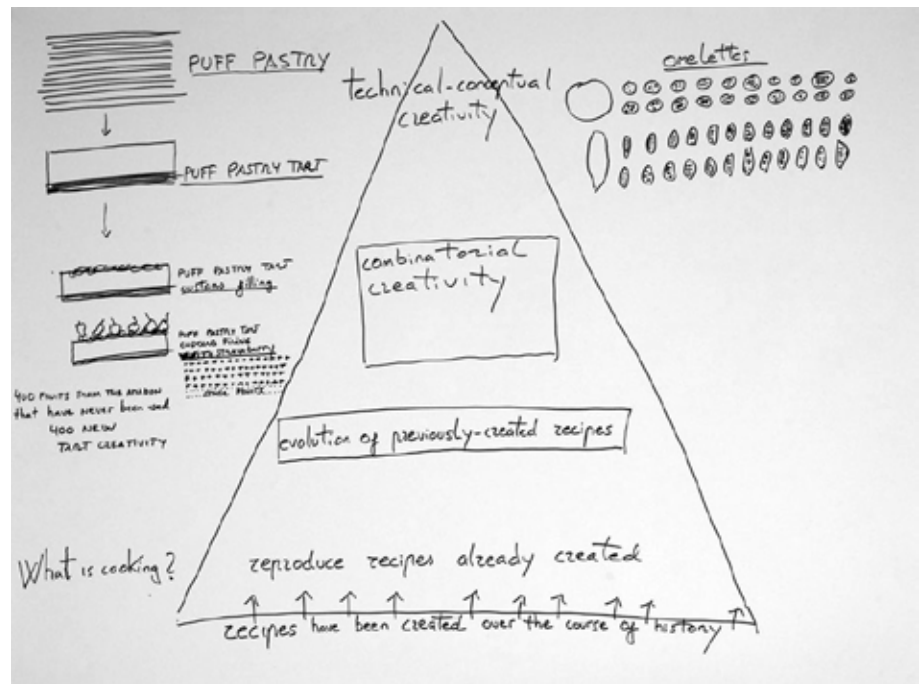 PUFF PASTRY
PUFF PASTRY TART
PUFF PASTRY TART
custard filling
PUFF PASTRY TART
CUSTARD FILLING
WITH strawberry
OTHER FRUITS
400 FRUITS FROM THE AMAZON
that have never been used
400 NEW
TART CREATIVITY
What is cooking?
technical-conceptual
creativity
combinatorial
creativity
evolution of previously-created recipes
reproduce recipes already created
recipes have been created over the course of history
omelettes